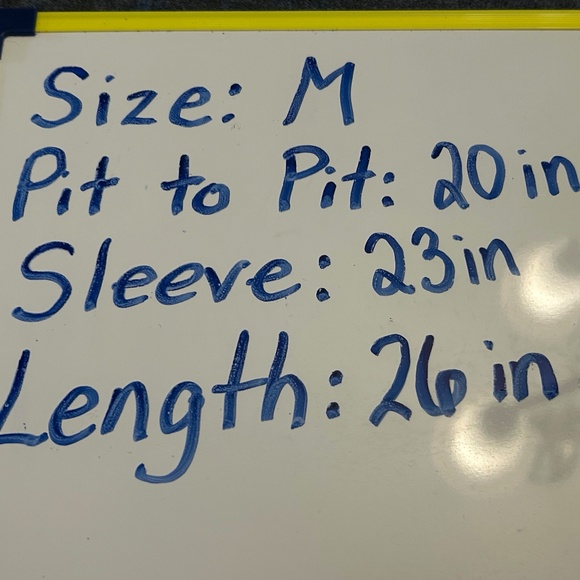 Size: M
Pit to Pit: 20 in
Sleeve: 23in
Length: 26 in